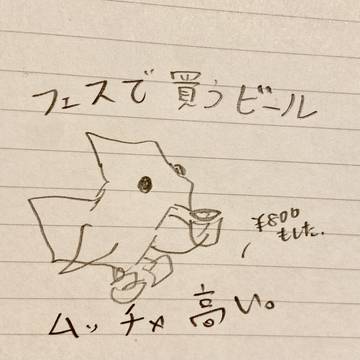 フェスで買うビール
¥800
もした.
ムッチャ高い。